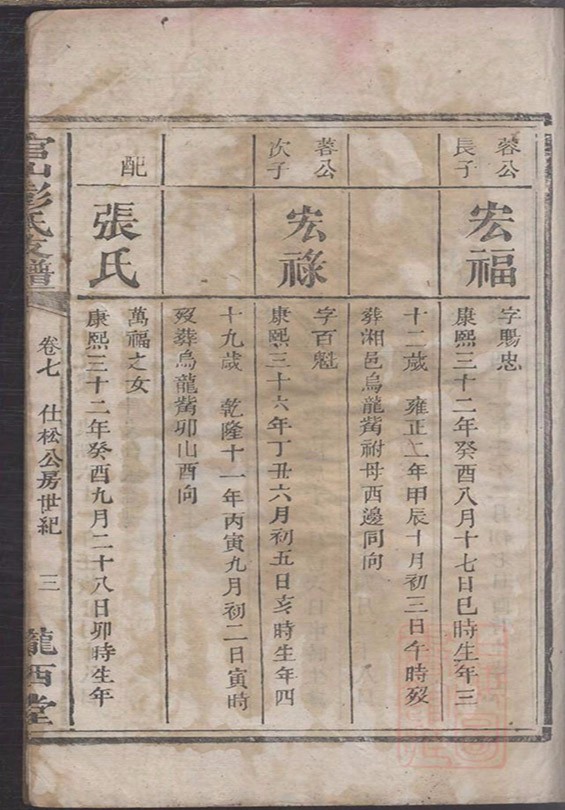 蓉公
長子
宏福
字賜忠
康熙三十二年癸酉八月十七日巳時生年三
十二歲 雍正二年甲辰十月初三日午時歿
葬湘邑烏龍嘴祔母西邊同向
蓉公
次子
宏祿
字百魁
康熙三十六年丁丑六月初五日亥時生年四
十九歲 乾隆十一年丙寅九月初二日寅時
歿葬烏龍嘴卯山酉向
配
張氏
萬福之女
康熙三十二年癸酉九月二十八日卯時生年
官山彭氏支譜
卷七 仕松公房世紀 三
隴西堂